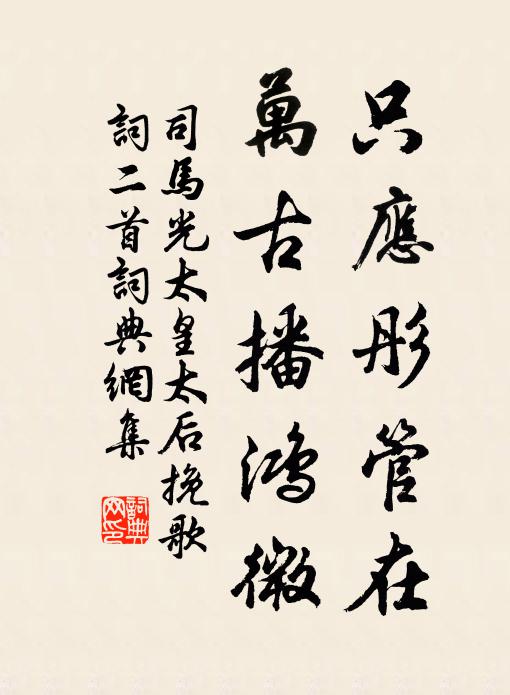 只應彤管在
萬古播鴻徽
司馬光太皇太后挽歌
詞二首詞典網集
詞典
網印